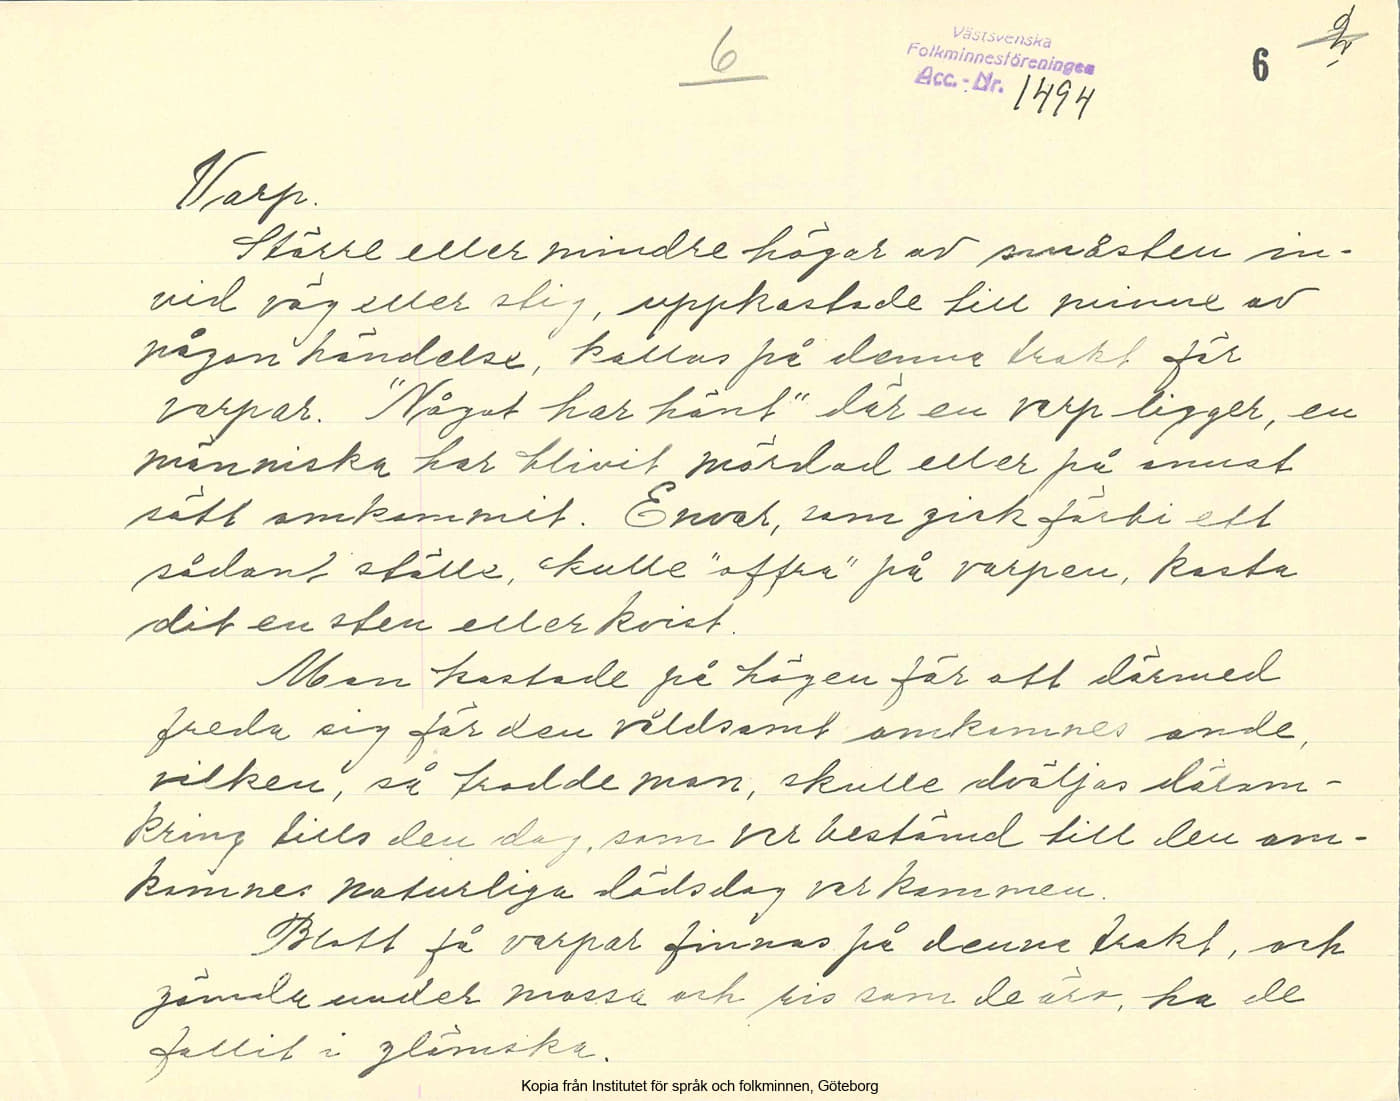 6
Västsvenska
Folkminnesföreningen
Acc.-Nr. 1494
6
2
Varp.
Större eller mindre högar av småsten in-
vid väg eller stig, uppkastade till minne av
någon händelse, kallas på denna trakt för
varpar. "Något har hänt" där en varp ligger, en
människa har blivit mördad eller på annat
sätt omkommit. Envar, som gick förbi ett
sådant ställe, skulle "offra" på varpen, kasta
dit en sten eller kvist.
Man kastade på högen för att därmed
freda sig för den våldsamt omkomnes ande,
vilken, så trodde man, skulle dväljas därom-
kring tills den dag, som var bestämd till den om-
komnes naturliga dödsdag var kommen.
Blott få varpar finnas på denna trakt, och
gömda under mossa och ris som de äro, ha de
fallit i glömska.
Kopia från Institutet för språk och folkminnen, Göteborg